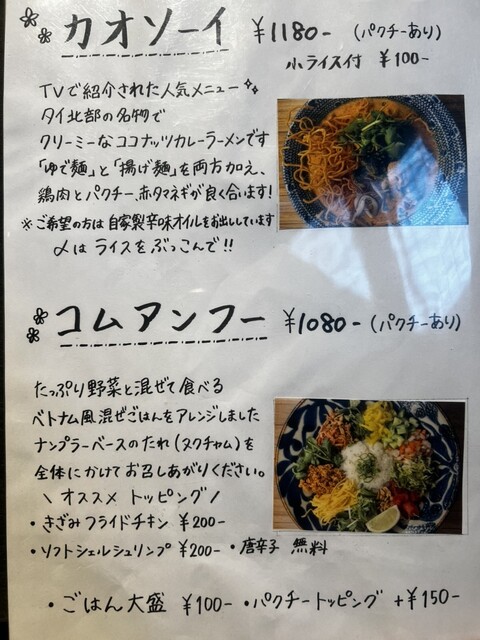 カオソーイ ¥1180- (パクチーあり)
小ライス付 ¥100-
TVで紹介された人気メニュー
タイ北部の名物で
クリーミーなココナッツカレーラーメンです
「ゆで麺」と「揚げ麺」を両方加え、
鶏肉とパクチー、赤タマネギが良く合います!
※ご希望の方は自家製辛味オイルをお出ししています
〆はライスをぶっこんで!!
コムアンフー ¥1080- (パクチーあり)
たっぷり野菜と混ぜて食べる
ベトナム風混ぜごはんをアレンジしました
ナンプラーベースのたれ(ヌクチャム)を
全体にかけてお召しあがりください。
\ オススメ トッピング /
・きざみフライドチキン ¥200-
・ソフトシェルシュリンプ ¥200- ・唐辛子 無料
・ごはん大盛 ¥100- ・パクチートッピング +¥150-